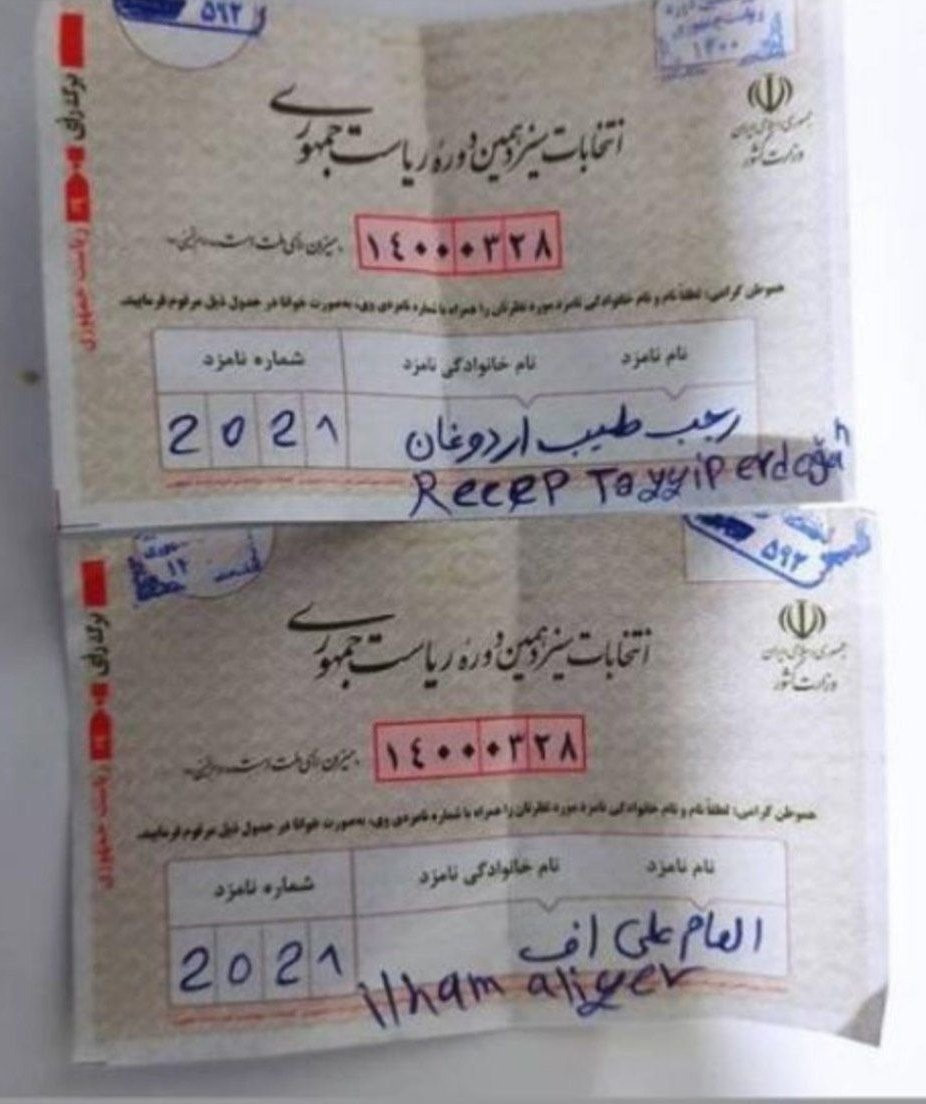 ۵۹۲
ریاست جمهوری
۱۴۰۰
برگ رأی
ریاست جمهوری
جمهوری اسلامی ایران
وزارت کشور
انتخابات سیزدهمین دورهٔ ریاست جمهوری
۱۴۰۰۰۳۲۸
میزان رأی ملت است
هموطن گرامی، لطفاً نام و نام خانوادگی نامزد مورد نظرتان را همراه با شماره نامزدی وی، به‌صورت خوانا در جدول ذیل مرقوم فرمایید.
نام نامزد نام خانوادگی نامزد شماره نامزد
رجب طیب اردوغان 2021
Recep Tayyip erdoğan
۵۹۲
برگ رأی
ریاست جمهوری
جمهوری اسلامی ایران
وزارت کشور
انتخابات سیزدهمین دورهٔ ریاست جمهوری
۱۴۰۰۰۳۲۸
میزان رأی ملت است
هموطن گرامی، لطفاً نام و نام خانوادگی نامزد مورد نظرتان را همراه با شماره نامزدی وی، به‌صورت خوانا در جدول ذیل مرقوم فرمایید.
نام نامزد نام خانوادگی نامزد شماره نامزد
الهام علی اف 2021
ilham aliyev